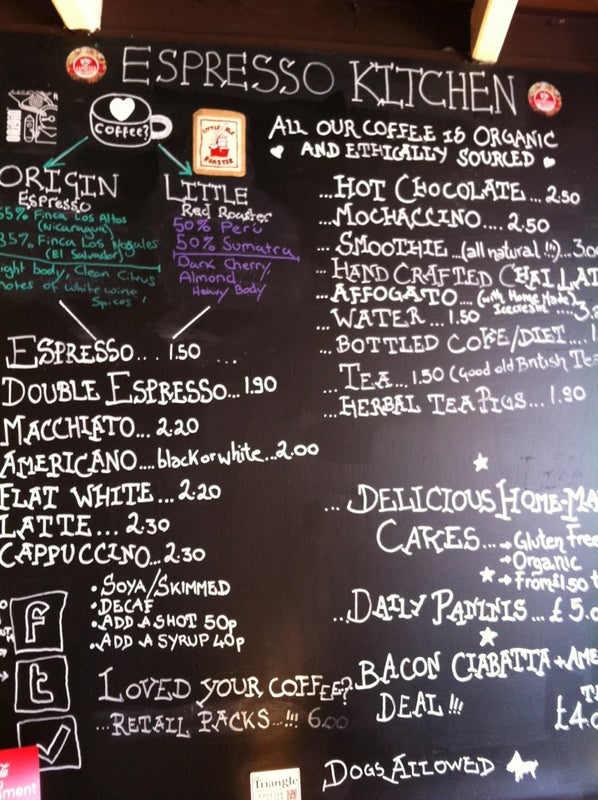 ESPRESSO KITCHEN
coffee?
ORIGIN
ALL OUR COFFEE IS ORGANIC
AND ETHICALLY SOURCED
ORIGIN
ESPRESSO
65% Finca Los Altos
(Nicaragua)
35% Finca Los Nogales
(El Salvador)
light body, Clean Citrus
notes of white wine
Spices
LITTLE
Red Roaster
50% Peru
50% Sumatra
Dark Cherry
Almond...
Heavy Body
ESPRESSO... 1.50 ...
DOUBLE ESPRESSO... 1.90
MACCHIATO... 2.20
AMERICANO....black or white...2.00
FLAT WHITE ... 2.20
LATTE... 2.30
CAPPUCCINO... 2.30
• SOYA/SKIMMED
• DECAF
• ADD A SHOT 50p
• ADD A SYRUP 40p
f
t
LOVED YOUR COFFEE?
...RETAIL PACKS...!!! 6.00
...HOT CHOCOLATE... 2.50
...MOCHACCINO.... 2.50
...SMOOTHIE...(all natural !!!)...3.0
...HAND CRAFTED CHAI LAT
...AFFOGATO....(with Home Made
Icecream)....3.
...WATER... 1.50
...BOTTLED COKE/DIET... 1
...TEA... 1.50 (Good old British Te
...HERBAL TEA PIGS... 1.90
... DELICIOUS HOME-MA
CAKES... → Gluten Free
→ Organic
→ From £1.50 t
...DAILY PANINIS... £ 5.0
BACON CIABATTA + AME
DEAL !!!
£4.0
DOGS ALLOWED
Triangle